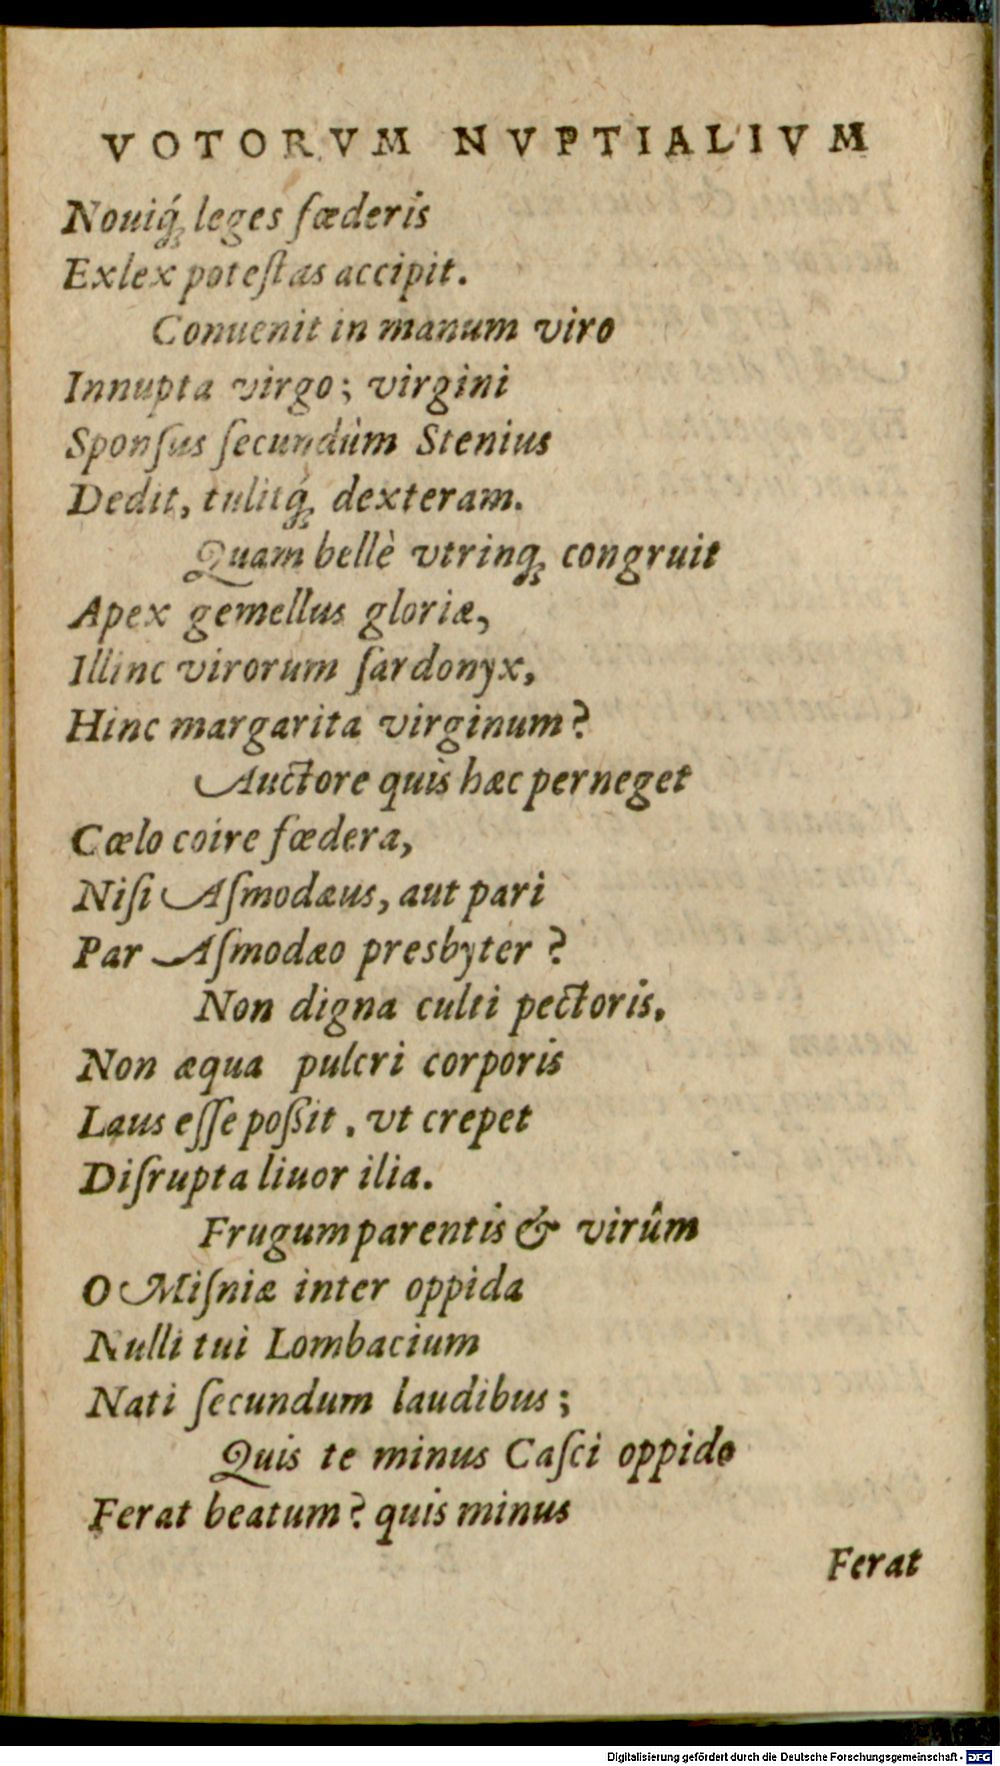 VOTORVM NVPTIALIVM
Nouiq́; leges fœderis
Exlex poteſtas accipit.
Conuenit in manum viro
Innupta virgo; virgini
Sponſus ſecundùm Stenius
Dedit, tulitq́; dexteram.
Quam bellè vtrinq; congruit
Apex gemellus gloriæ,
Illinc virorum ſardonyx,
Hinc margarita virginum?
Auctore quis hæc perneget
Cœlo coire fœdera,
Niſi Aſmodæus, aut pari
Par Aſmodæo presbyter?
Non digna culti pectoris,
Non æqua pulcri corporis
Laus eſſe poßit, vt crepet
Diſrupta liuor ilia.
Frugum parentis & virûm
O Miſniæ inter oppida
Nulli tui Lombacium
Nati ſecundum laudibus;
Quis te minus Caſci oppido
Ferat beatum? quis minus
Ferat
Digitalisierung gefördert durch die Deutsche Forschungsgemeinschaft - DFG